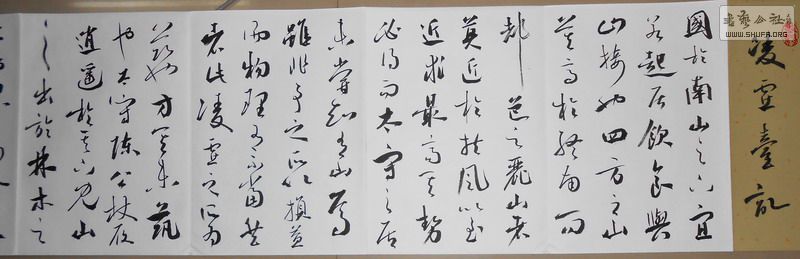 書藝公社
WWW.SHUFA.ORG
凌虛臺記
國於南山之下宜
若起居飲食與
山接也四方之山
莫高於終南而
都邑之麗山者
莫近於扶風以至
近求最高其勢
必得而太守之居
未嘗知有山焉
雖非事之所以損益
而物理有不當然
者此凌虛之所為
築也方其未築
也太守陳公杖履
逍遙於其下見山
之出於林木之